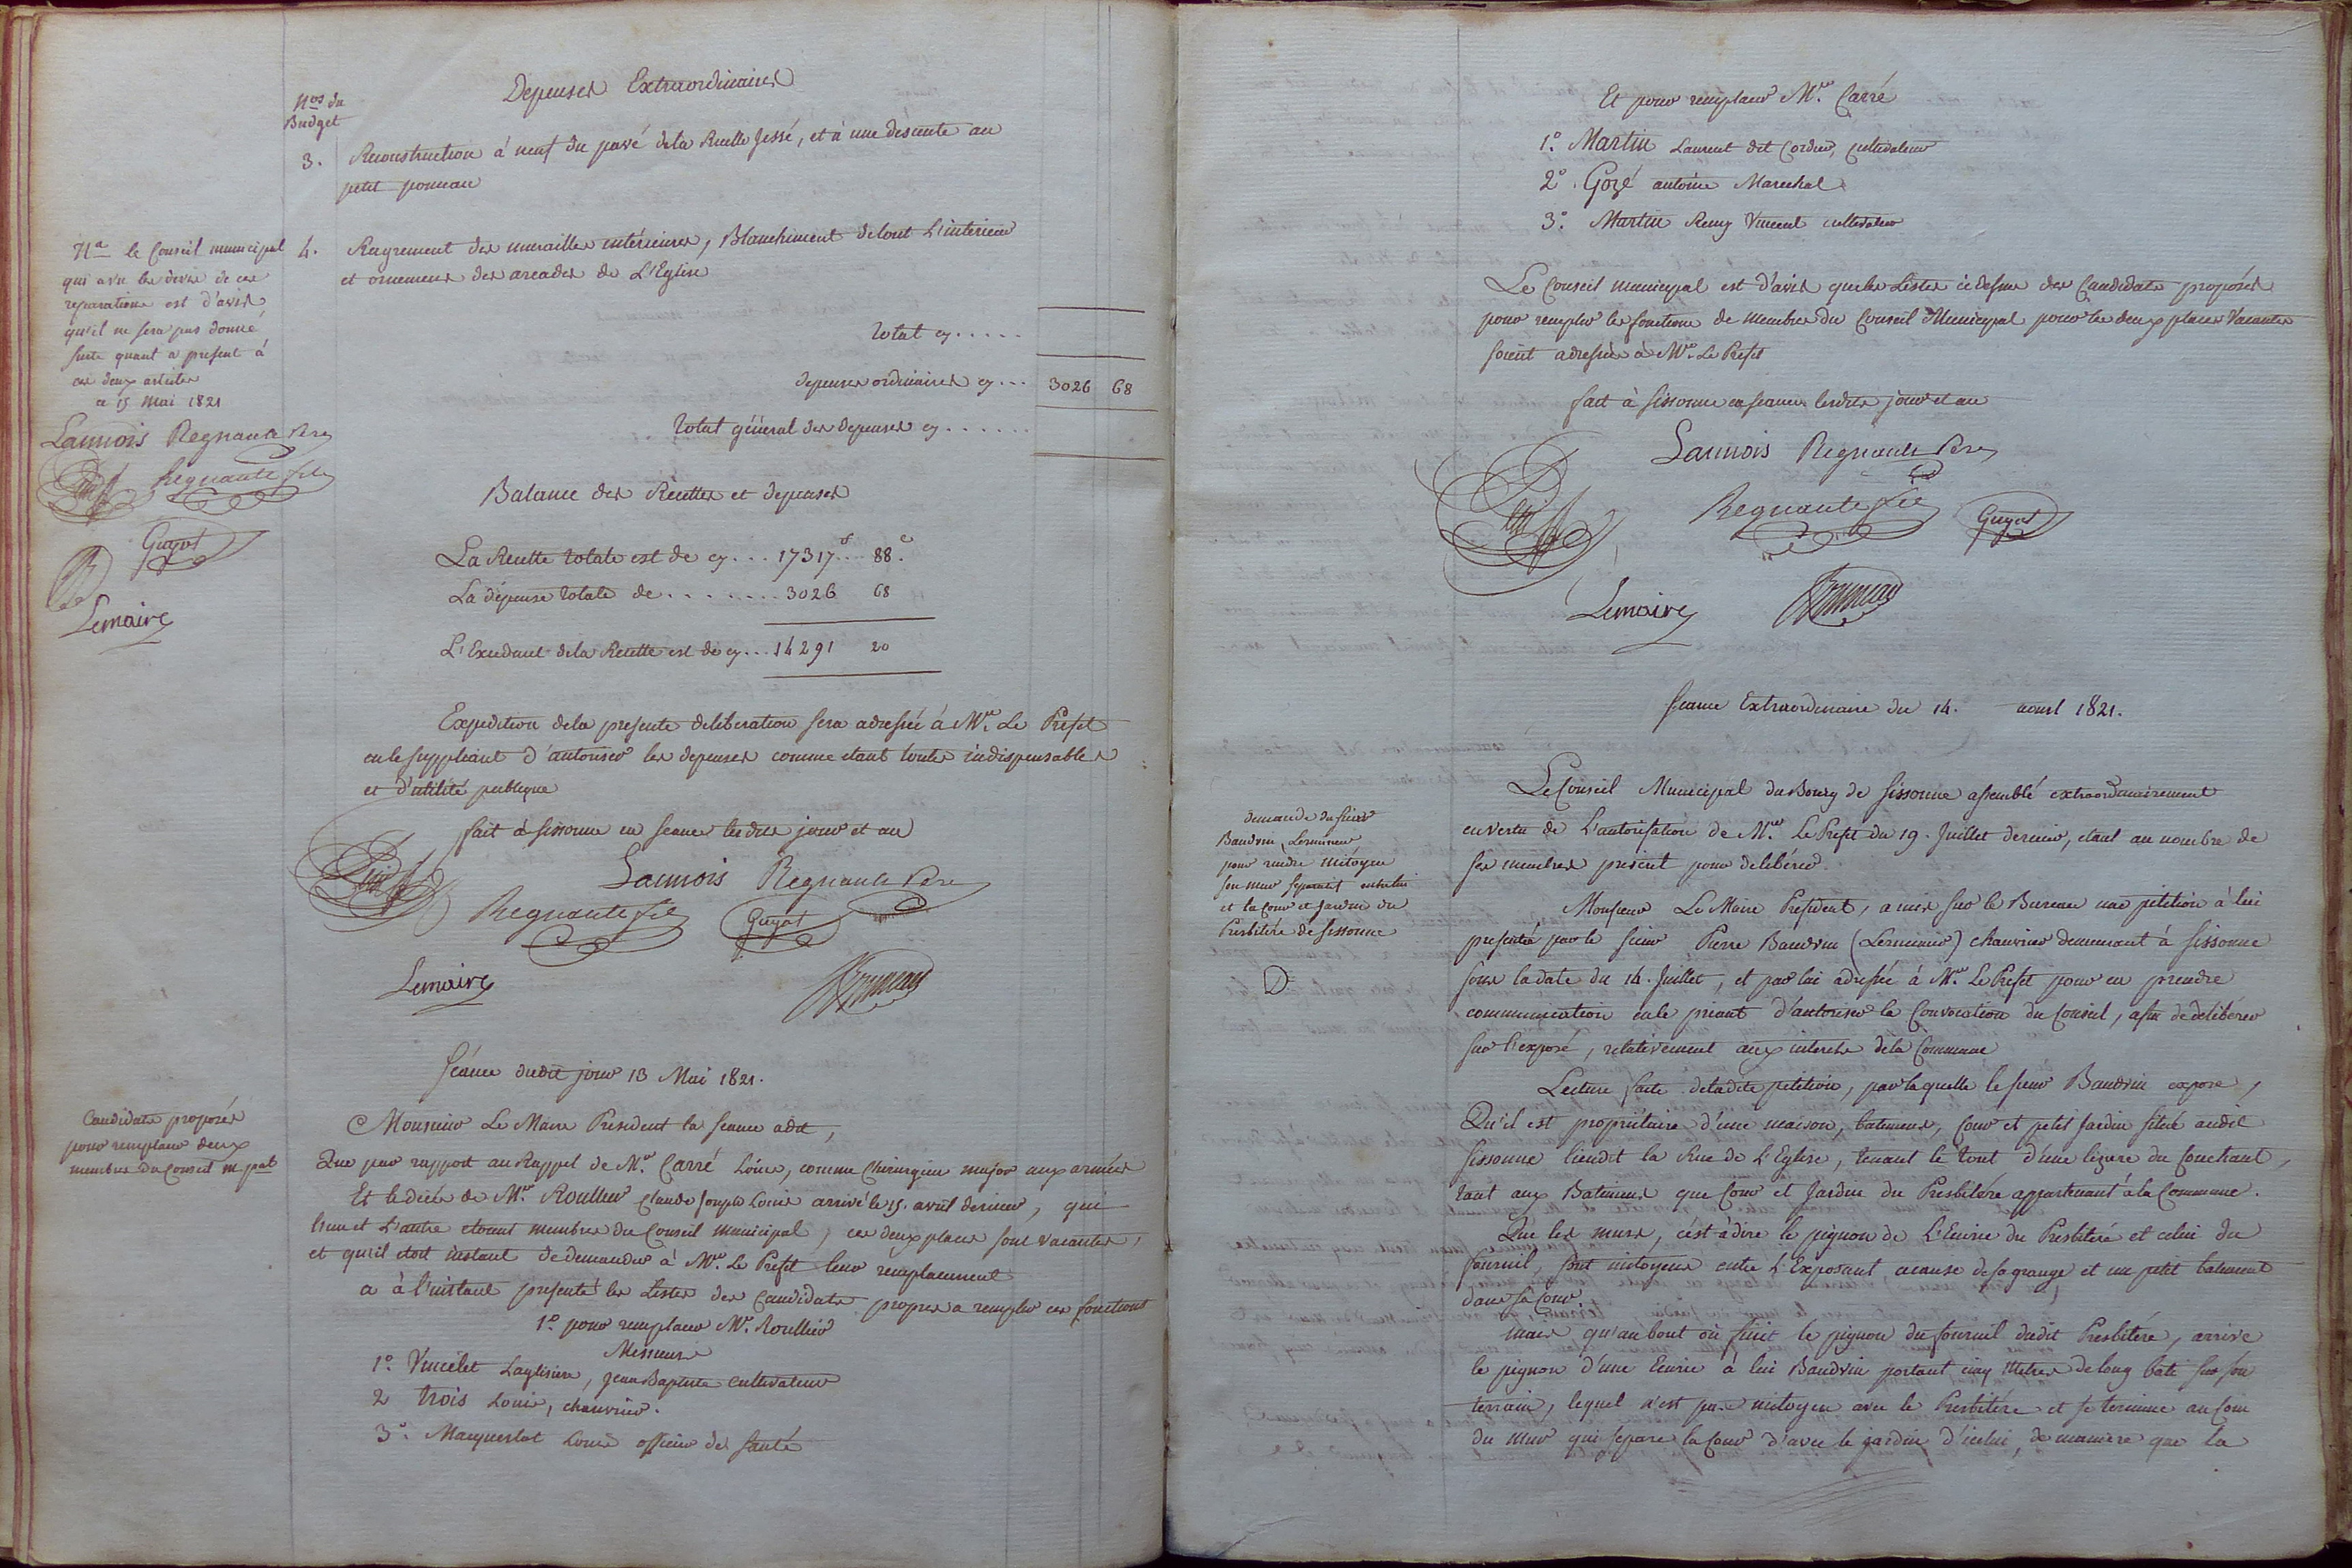 Depenses Extraordinaires
Nos du
Budget
3. Reconstruction à neuf du pavé de la Ruelle Jessé, et à une descente au
petit ponceau
4. Regrement des murailles intérieures, Blanchiment de tout L'intérieur
et ornemens des arcades de L'Eglise
Na le Conseil municipal
qui a vu les devis de ces
reparations est d'avis
qu'il ne sera pas donné
suite quant a present à
ces deux articles
ce 15 Mai 1821
Launois Regnault Pere
Regnault fils
Guyot
Lemaire
Total cy . . . . .
depenses ordinaires cy . . . 3026 68
Total général des depenses cy . . . . . .
Balance des Recettes et depenses
La Recette totale est de cy . . . 17317 f . . 88 c.
La dépense totale de . . . . . . . . 3026 68
L'Excedant de la Recette est de cy . . . 14291 20
Expedition de la presente deliberation sera adressée à Mr. Le Prefet
en le suppliant d'autoriser les depenses comme etant toutes indispensables
et d'utilité publique
fait à Sissonne en seance lesdits jour et an
Launois Regnault Pere
Regnault fils Guyot
Lemaire Bruneau
Séance dudit jour 13 Mai 1821.
Candidats proposés
pour remplacer deux
membres du Conseil m.pal
Monsieur Le Maire President la seance a dit,
Que par rapport au Rappel de Mr. Carré Louis, comme Chirurgien major aux armées
Et le décés de Mr. Roullier Claude Joseph Louis arrivé le 15. avril dernier, qui
l'un et L'autre etoient membres du Conseil municipal, ces deux places sont vacantes,
et qu'il etoit instant de demander à Mr. Le Prefet leur remplacement
a à l'instant presenté les Listes des Candidats propres a remplir ces fonctions
1o. pour remplacer Mr. Roullier
Messieurs
1o. Vincelet Laglisiere, Jean Baptiste cultivateur
2 trois Louis, chanvrier.
3o. Macquerlot Louis officier de santé
Et pour remplacer Mr. Carré
1o. Martin Laurent dit Cordier, cultivateur
2o. Gozé antoine Marechal
3o. Martin Remy Vincent cultivateur
Le Conseil municipal est d'avis que les Listes ci dessus des Candidats proposés
pour remplir les fonctions de membres du Conseil Municipal pour les deux places Vacantes
soient adressées à Mr. Le Prefet
fait à Sissonne en seance lesdits jour et an
Launois Regnault Pere
Regnault fils Guyot
Lemaire Bruneau
Seance Extraordinaire du 14. aoust 1821.
demande du sieur
Baudrin Lermineur
pour rendre mitoyen
son mur separatif entre lui
et la Cour et Jardin du
Presbitére de Sissonne
Le Conseil Municipal du Bourg de Sissonne assemblé extraordinairement
en vertu de L'autorisation de Mr. Le Prefet du 19. Juillet dernier, etant au nombre de
ses membres présent pour delibérer.
Monsieur Le Maire President, a mis sur le Bureau une pétition à lui
presentée par le sieur Pierre Baudrin (Lermineur) chanvrier demeurant à Sissonne
sous la date du 14. Juillet, et par lui adressée à Mr. Le Prefet pour en prendre
communication en le priant d'autoriser la Convocation du Conseil, afin de délibérer
sur l'exposé, relativement aux interets de la Commune
Lecture faite de ladite petition, par laquelle le sieur Baudrin expose,
Qu'il est propriétaire d'une maison, batimens, Cour et petit Jardin situé audit
Sissonne lieudit la Rue de L'Eglise, tenant le tout d'une lizere du Couchant,
tant aux Batimens que Cour et Jardin du Presbitére appartenant à la Commune.
Que les murs, c'est-à-dire le pignon de L'Ecurie du Presbitére et celui du
fournil, sont mitoyens entre L'Exposant acause de sa grange et un petit batiment
dans sa Cour,
mais qu'au bout où finit le pignon du fournil dudit Presbitére, arrive
le pignon d'une Ecurie à lui Baudrin portant cinq Metres de long bati sur son
terrain, lequel n'est pas mitoyen avec le Presbitére et se termine au Coin
du mur qui separe la Cour d'avec le jardin d'icelui, de maniere que la